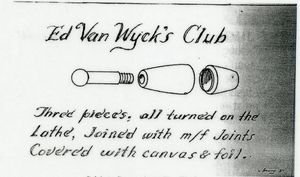 Ed Van Wyck's Club
Three pieces, all turned on the
Lathe, Joined with m/f Joints
Covered with canvas & foil.